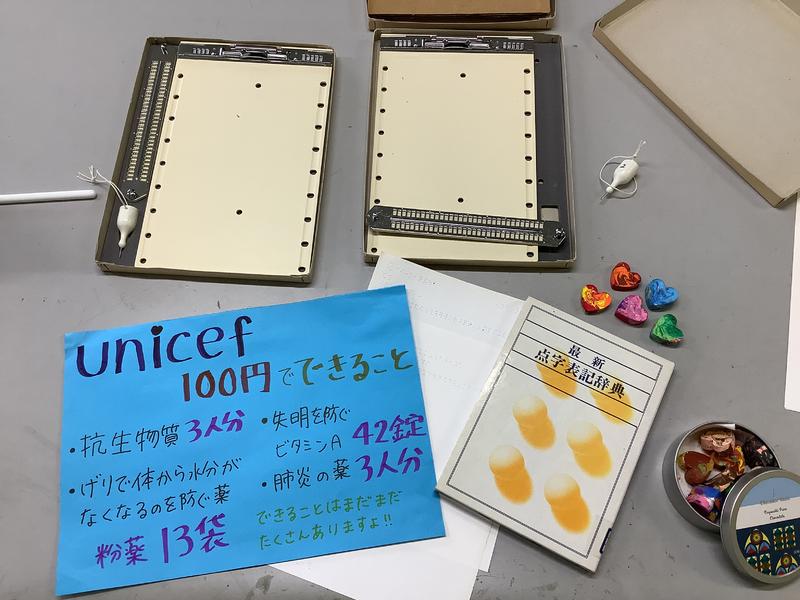 unicef
100円でできること
・抗生物質 3人分
・げりで体から水分が
なくなるのを防ぐ薬
粉薬 13袋
・失明を防ぐ
ビタミンA 42錠
・肺炎の薬 3人分
できることはまだまだ
たくさんありますよ!!
最新
点字表記辞典